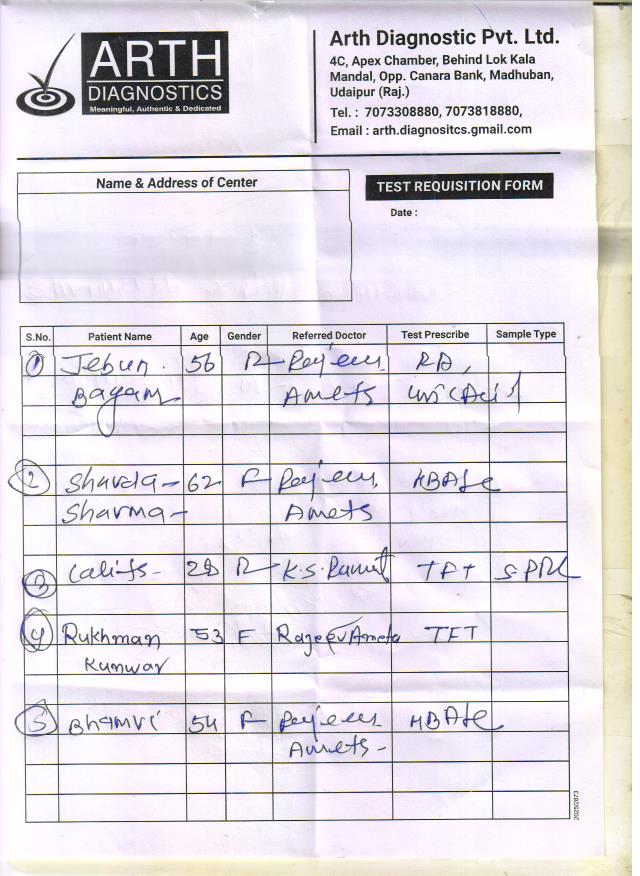 ARTH
DIAGNOSTICS
Meaningful, Authentic & Dedicated
Arth Diagnostic Pvt. Ltd.
4C, Apex Chamber, Behind Lok Kala
Mandal, Opp. Canara Bank, Madhuban,
Udaipur (Raj.)
Tel. : 7073308880, 7073818880,
Email : arth.diagnositcs.gmail.com
Name & Address of Center
TEST REQUISITION FORM
Date :
S.No. Patient Name Age Gender Referred Doctor Test Prescribe Sample Type
1 Jebun 56 RA,
Bagam Ameta Uric Acid
2 Sharda 62 F HBA1c
Sharma Ameta
3 28 K.S. TFT
4 Rukhman 53 F Rajeev Ameta TFT
Kunwar
5 Bhamri 54 F HBA1c
Ameta
2025/2873